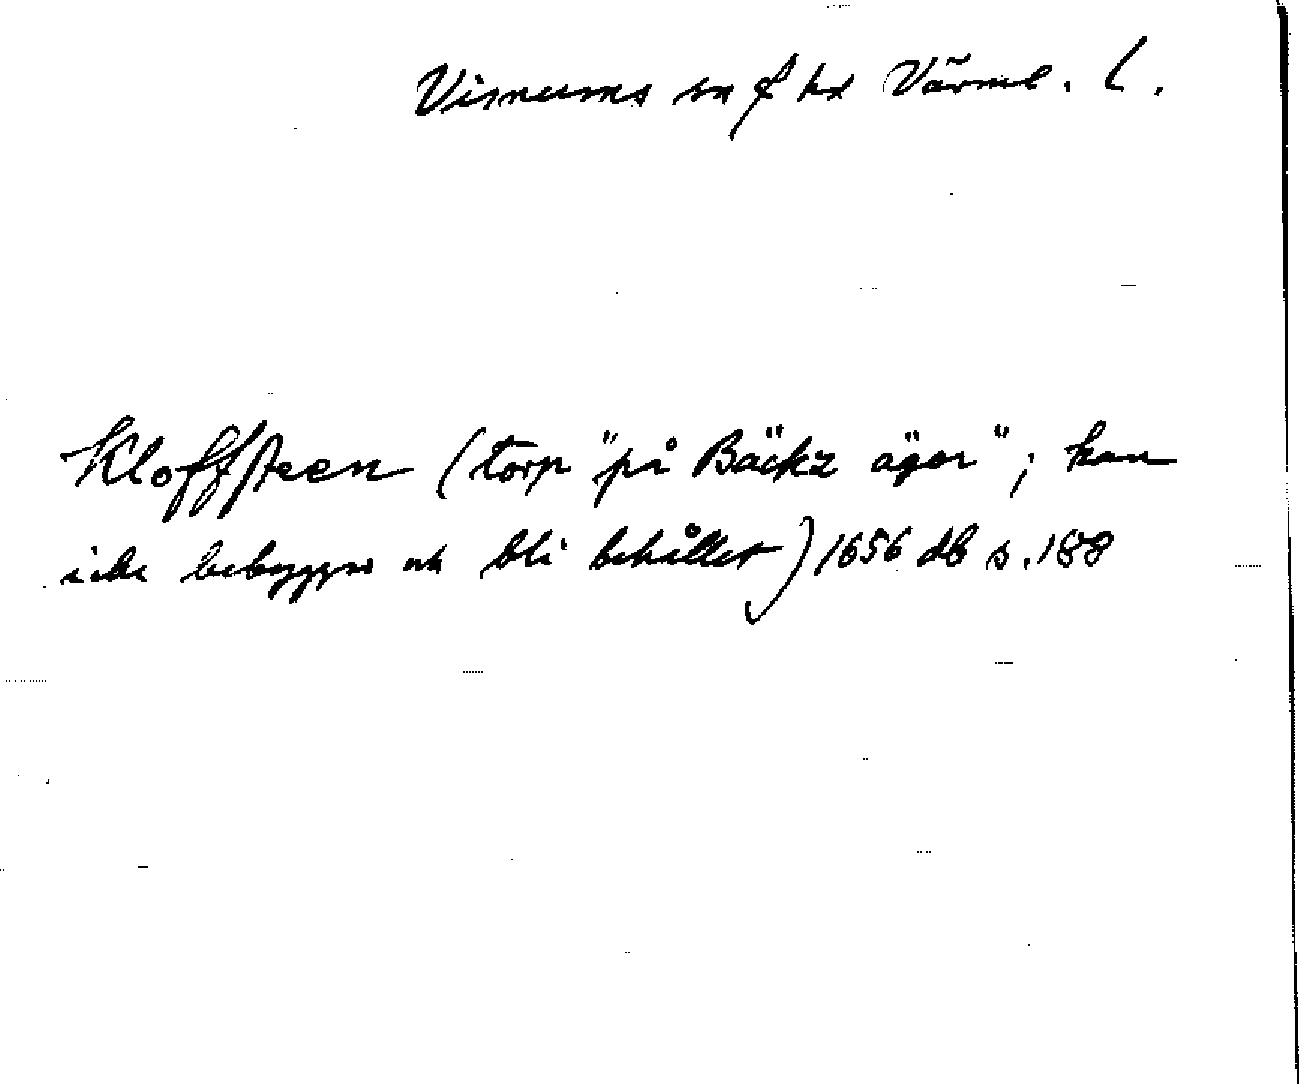 Visnums sn o hd Värml. l.
Kloffsteen (torp "på Bäckz ägor"; kan
icke bebyggas och bli behållet) 1656 db s. 188